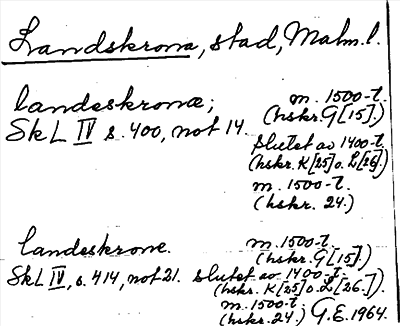 Landskrona, stad, Malm.l.
landeskronæ; m. 1500-t.
(hskr. G[15].)
SkL IV s. 400, not 14.
slutet av 1400-t.
(hskr. K[25] o. L[26].)
m. 1500-t.
(hskr. 24.)
landeskrone. m. 1500-t.
(hskr. G[15].)
SkL IV, s. 414, not 21. slutet av 1400-t.
(hskr. K[25] o. L[26.]).
m. 1500-t.
(hskr. 24.) G.E. 1964.